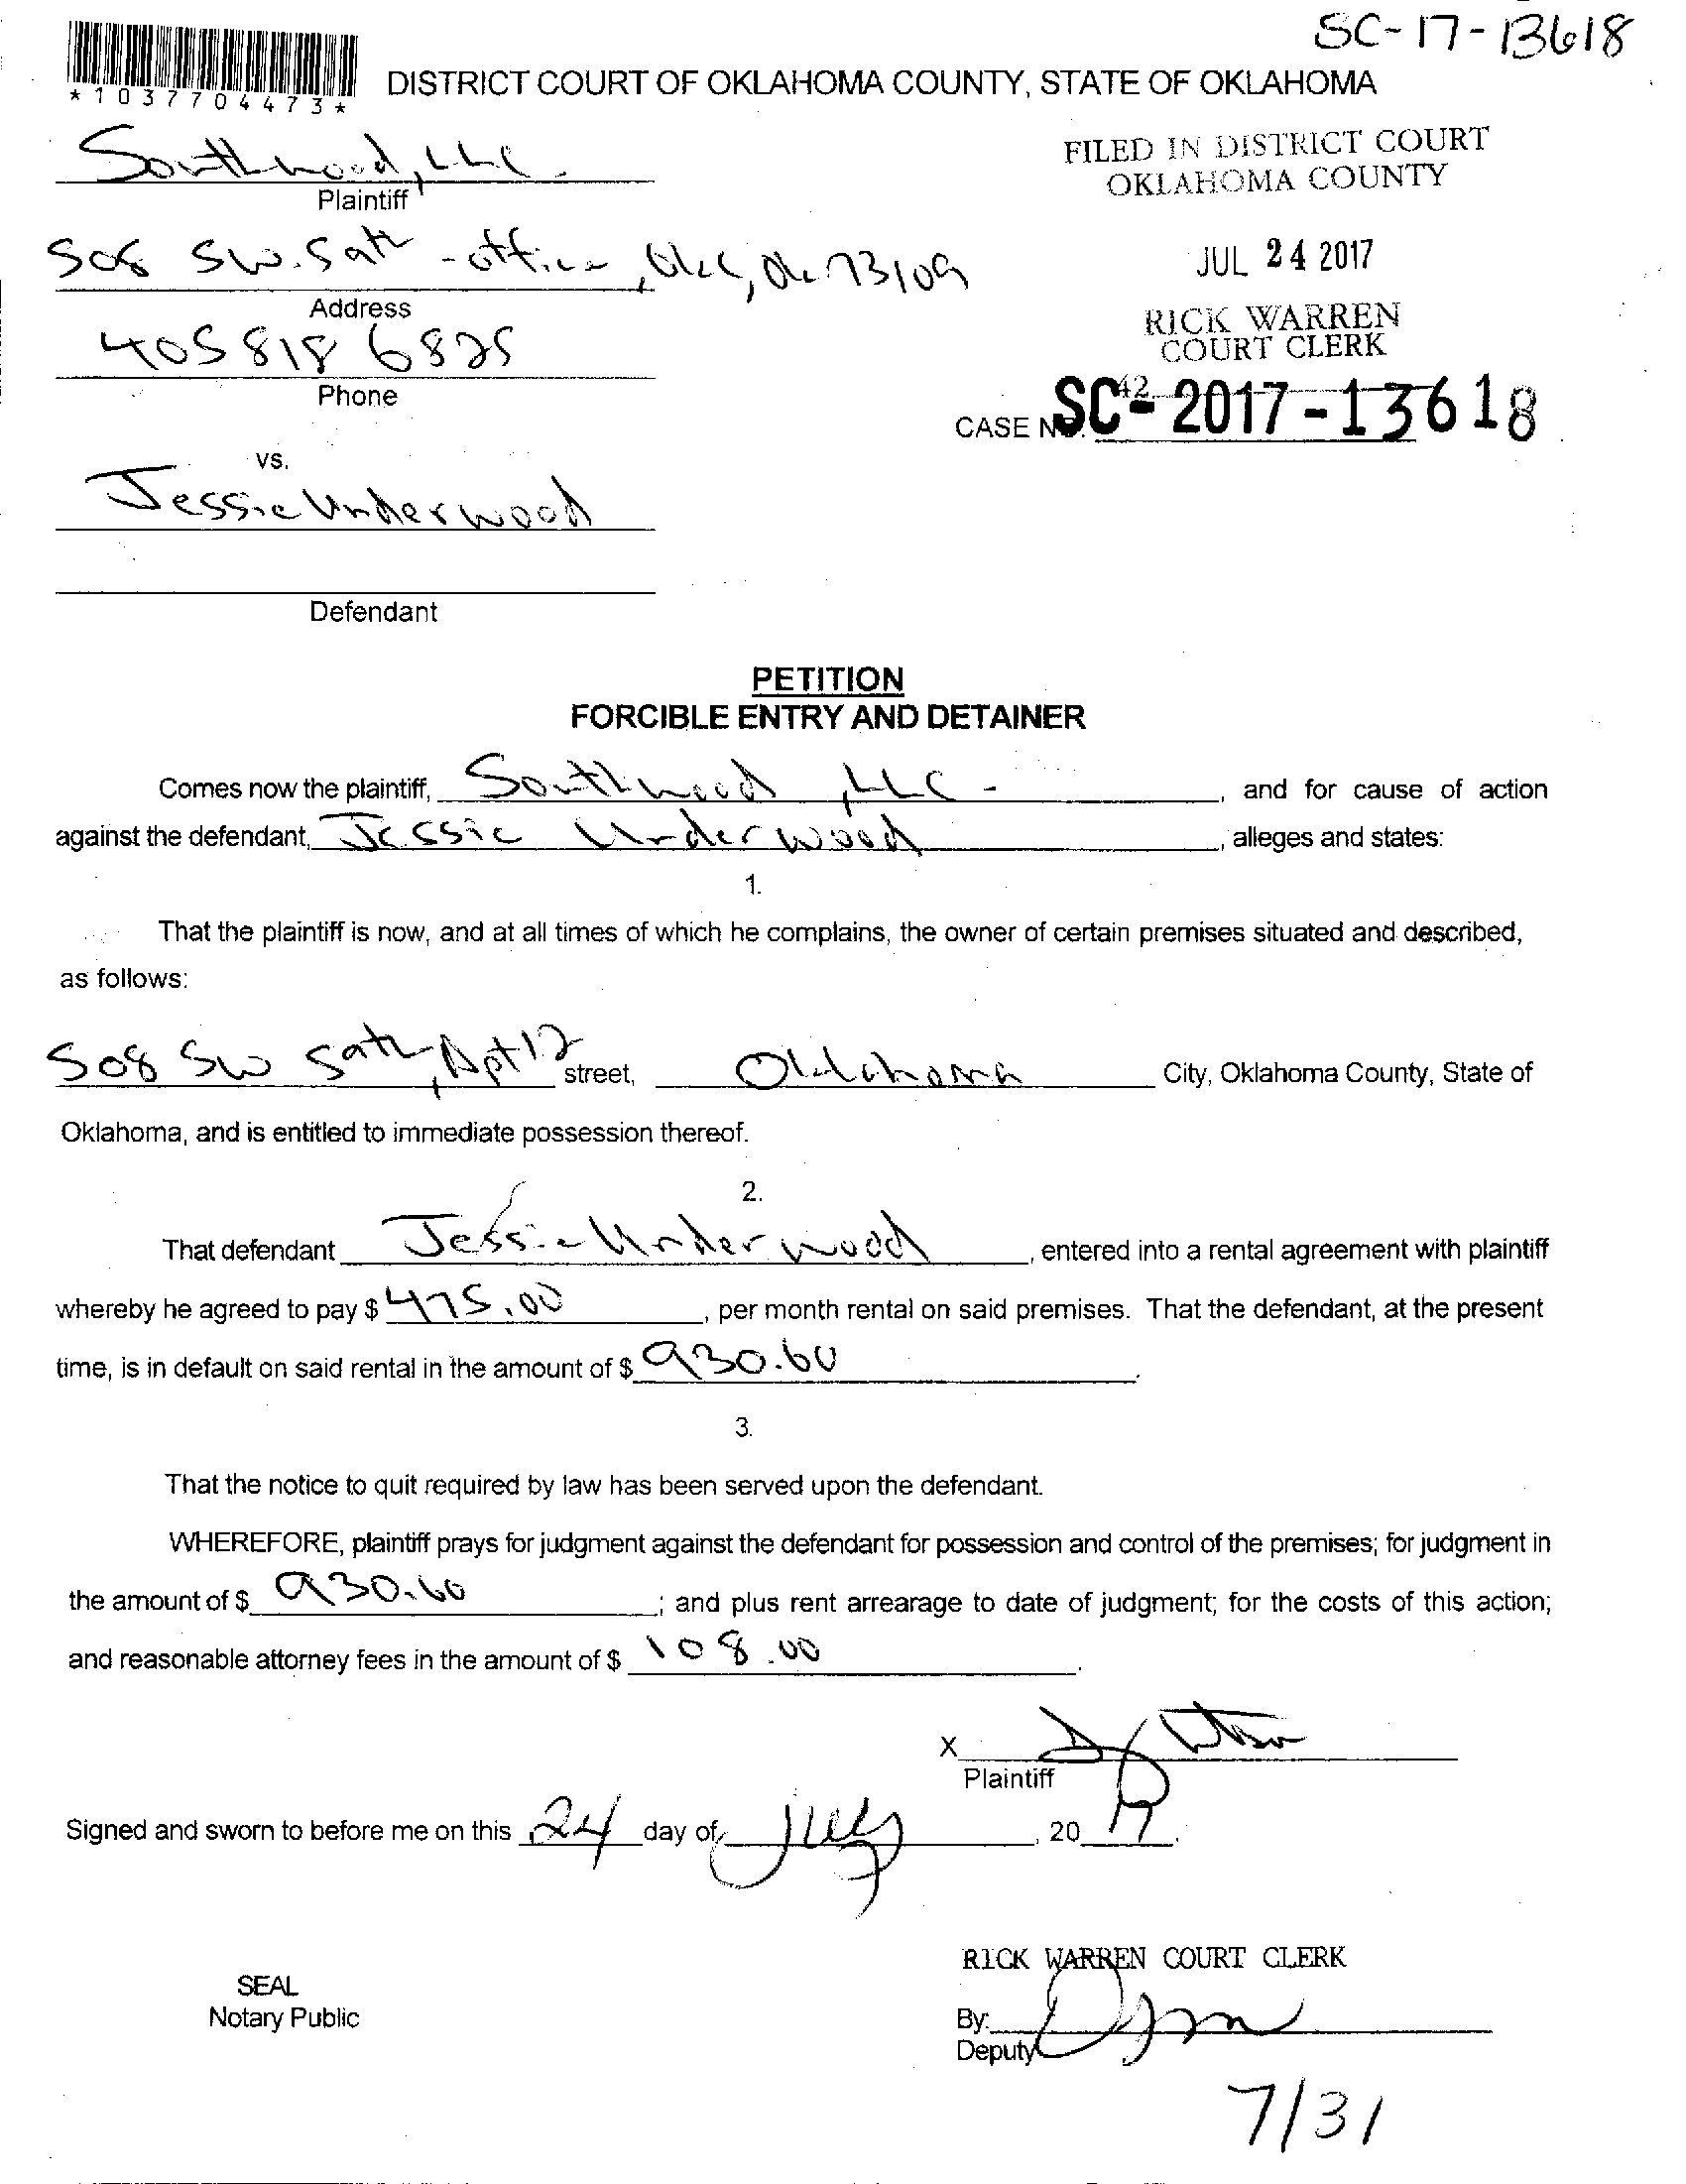 SC-17-13618
*1037704473*
DISTRICT COURT OF OKLAHOMA COUNTY, STATE OF OKLAHOMA
Southwood, LLC.
Plaintiff
FILED IN DISTRICT COURT
OKLAHOMA COUNTY
508 SW. 59th - office, OKC, OK 73109
Address
JUL 24 2017
405 818 6825
Phone
RICK WARREN
COURT CLERK
42
CASE NO. SC-2017-13618
vs.
Jessie Underwood
Defendant
PETITION
FORCIBLE ENTRY AND DETAINER
Comes now the plaintiff, Southwood, LLC - , and for cause of action
against the defendant, Jessie Underwood , alleges and states:
1.
That the plaintiff is now, and at all times of which he complains, the owner of certain premises situated and described,
as follows:
508 SW 59th, Apt 12 street, Oklahoma City, Oklahoma County, State of
Oklahoma, and is entitled to immediate possession thereof.
2.
That defendant Jessie Underwood , entered into a rental agreement with plaintiff
whereby he agreed to pay $ 475.00 , per month rental on said premises. That the defendant, at the present
time, is in default on said rental in the amount of $ 930.60 .
3.
That the notice to quit required by law has been served upon the defendant.
WHEREFORE, plaintiff prays for judgment against the defendant for possession and control of the premises; for judgment in
the amount of $ 930.60 ; and plus rent arrearage to date of judgment; for the costs of this action;
and reasonable attorney fees in the amount of $ 108.00 .
X
Plaintiff
Signed and sworn to before me on this 24 day of July , 20 17 .
RICK WARREN COURT CLERK
SEAL
Notary Public
By:
Deputy
7/31